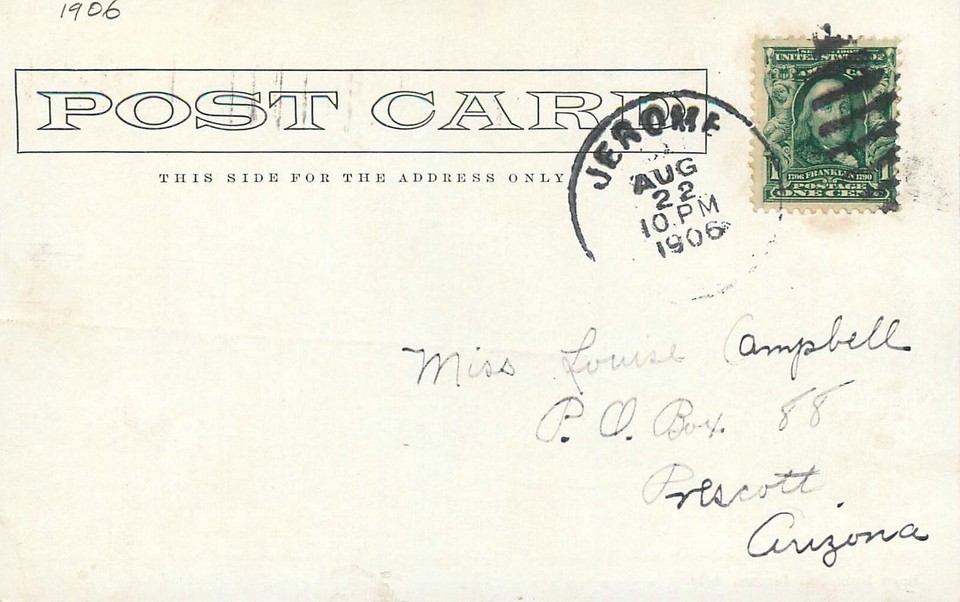 1906
POST CARD
THIS SIDE FOR THE ADDRESS ONLY
JEROME
AUG
22
10 PM
1906
SERIES 1902
UNITED STATES OF
AMERICA
1 1706 FRANKLIN 1790 1
POSTAGE
ONE CENT
Miss Louise Campbell
P. O. Box. 88
Prescott.
Arizona